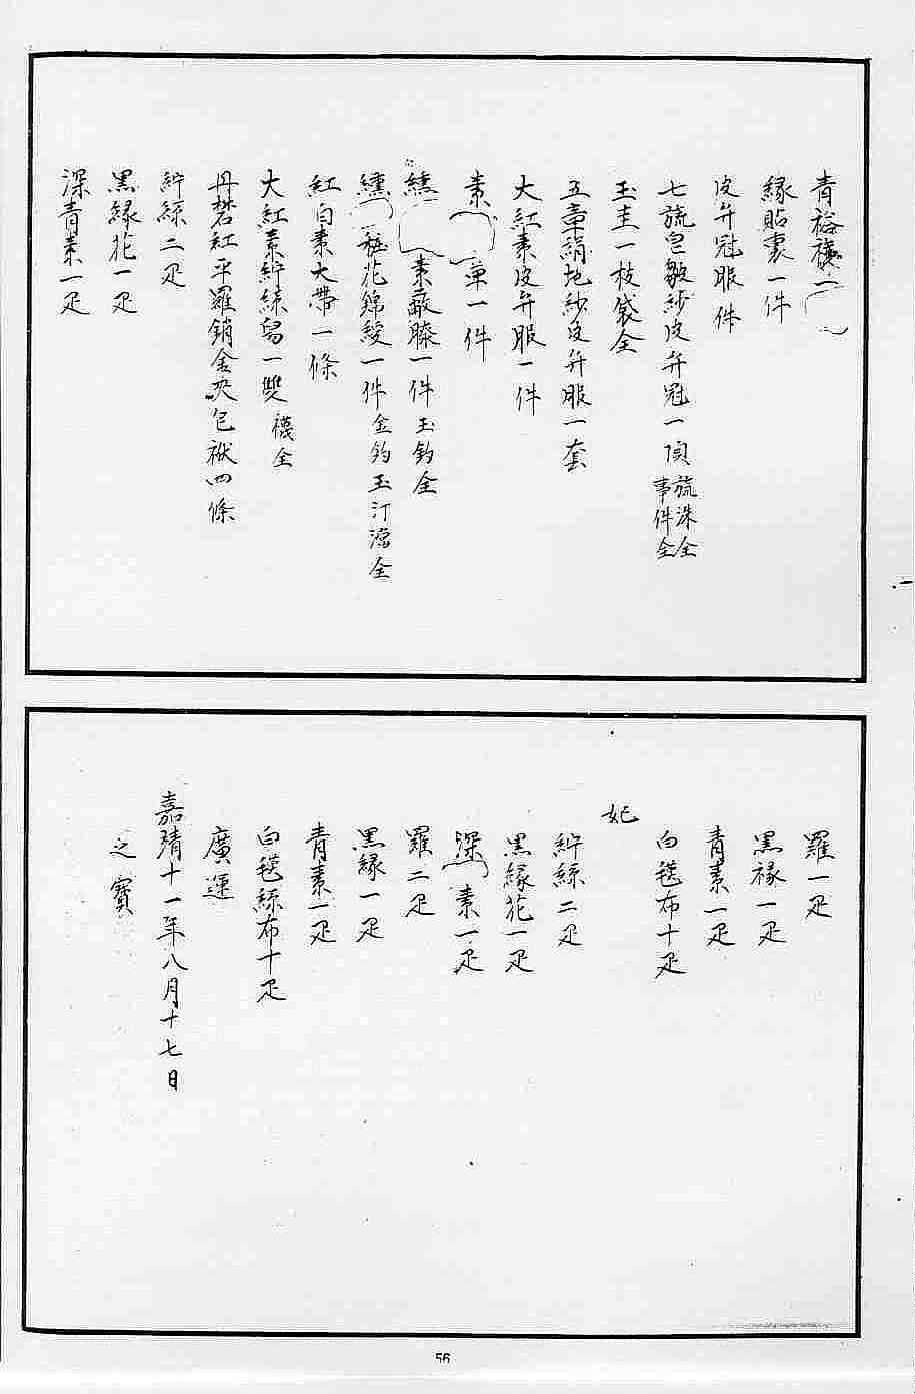 青褡𧞤一
緣貼裏一件
皮弁冠服一件
七旒皂皺紗皮弁冠一頂旒珠全事件全
玉圭一枝袋全
五章絹地紗皮弁服一套
大紅素皮弁服一件
素章一件
纁素蔽膝一件玉鈎全
纁粧花錦綬一件金鈎玉汀璫全
紅白素大帶一條
大紅素紵絲舄一雙襪全
丹礬紅平羅銷金夾包袱四條
紵絲二疋
黑緑花一疋
深青素一疋
羅一疋
黑緑一疋
青素一疋
白氁布十疋
妃
紵絲二疋
黑緑花一疋
深素一疋
羅二疋
黑緑一疋
青素一疋
白氁絲布十疋
廣運
嘉靖十一年八月十七日
之寶
56